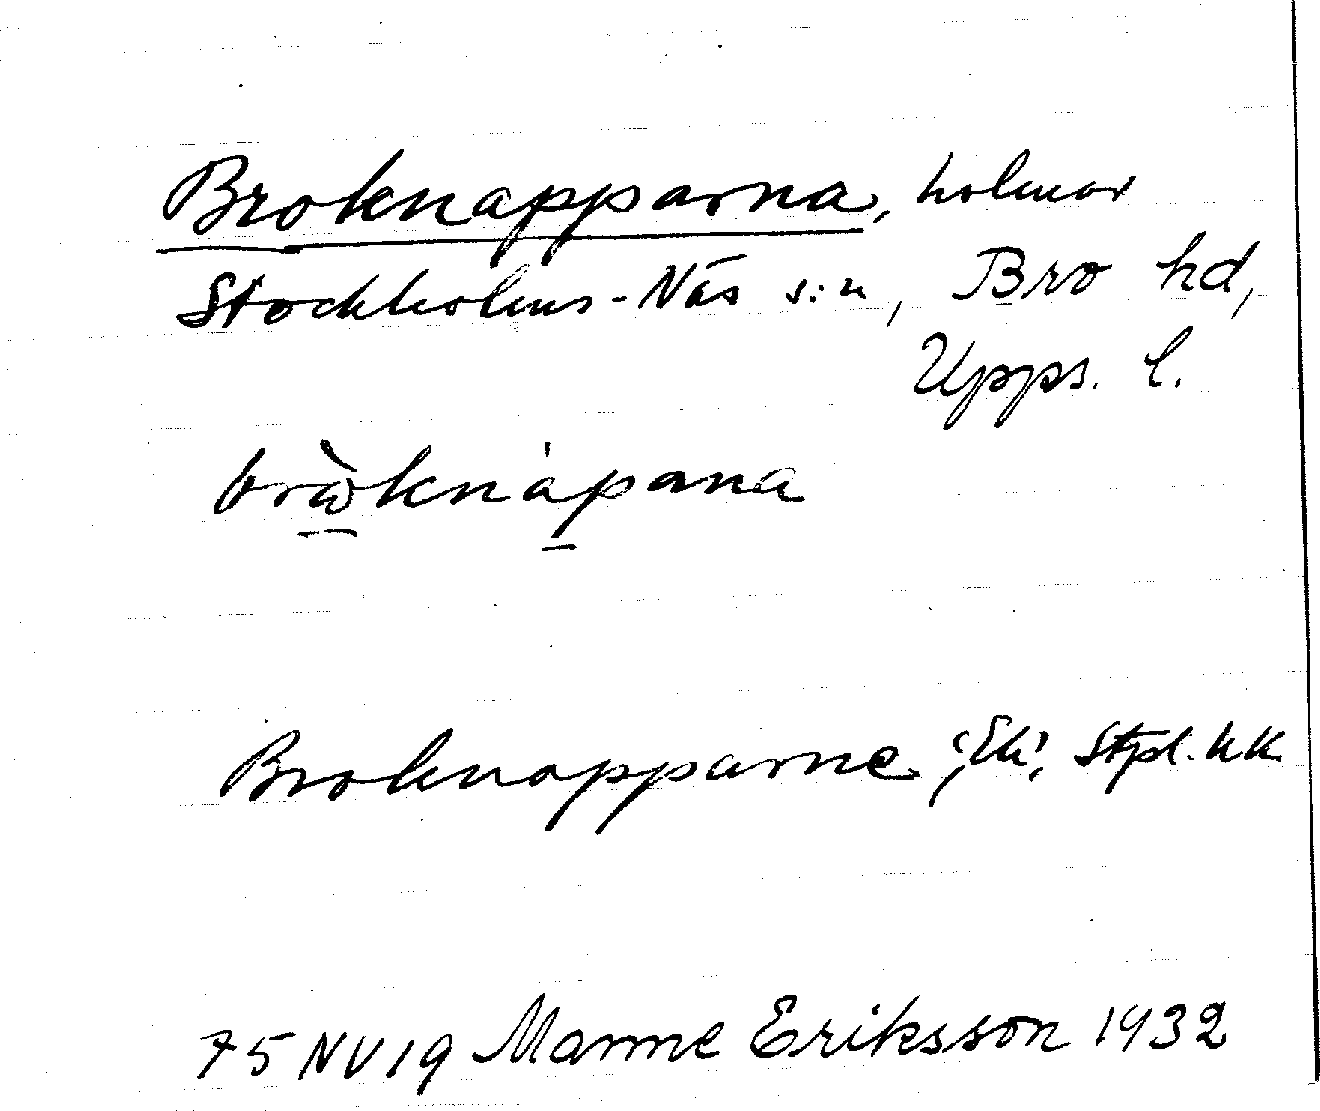 Broknapparna, holmar
Stockholms-Näs s:n, Bro hd,
Upps. l.
bròknápana
Broknapparne 'Ek', Stpl. kk
75 NV 19 Manne Eriksson 1932